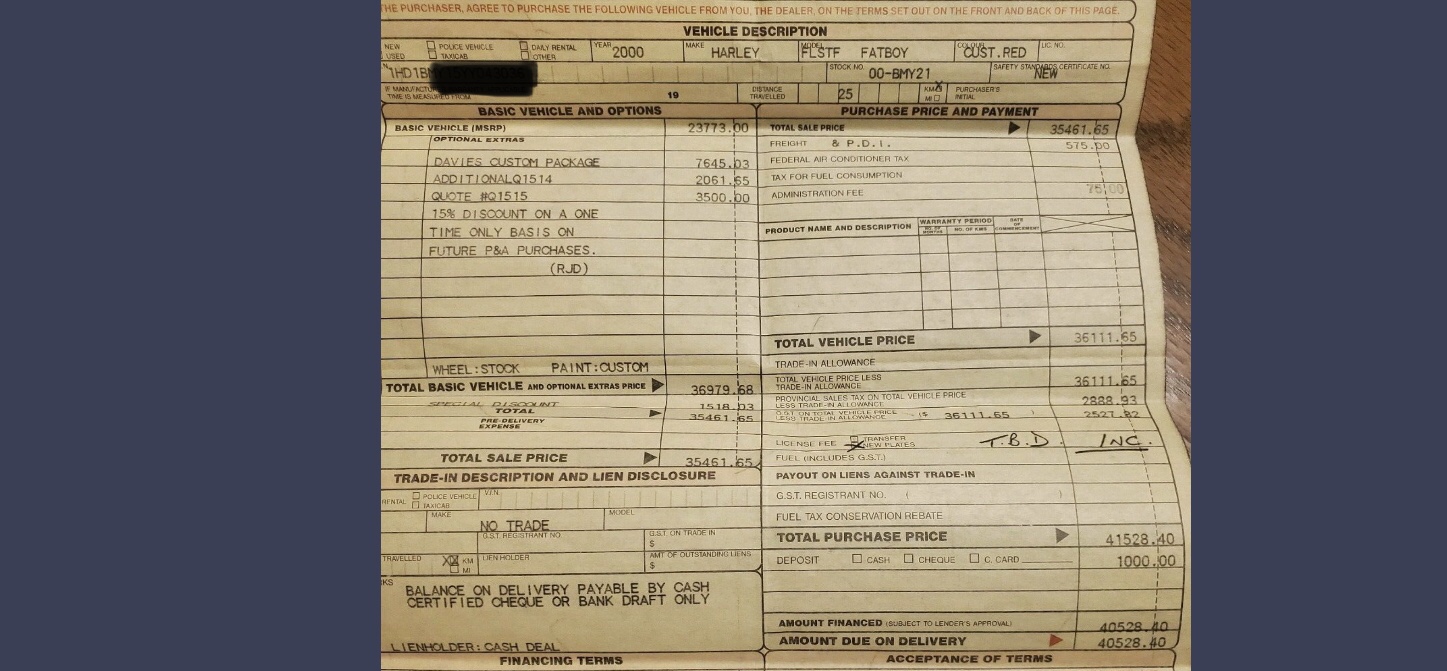 THE PURCHASER, AGREE TO PURCHASE THE FOLLOWING VEHICLE FROM YOU, THE DEALER, ON THE TERMS SET OUT ON THE FRONT AND BACK OF THIS PAGE.
VEHICLE DESCRIPTION
NEW POLICE VEHICLE DAILY RENTAL YEAR 2000 MAKE HARLEY MODEL FLSTF FATBOY COLOUR CUST.RED LIC. NO.
USED TAXICAB OTHER
1HD1BM STOCK NO. 00-BMY21 SAFETY STANDARDS CERTIFICATE NO. NEW
IF MANUFACTU
TIME IS MEASURED FROM 19 DISTANCE TRAVELLED 25 KM MI PURCHASER'S INITIAL
BASIC VEHICLE AND OPTIONS
BASIC VEHICLE (MSRP) 23773.00
OPTIONAL EXTRAS
DAVIES CUSTOM PACKAGE 7645.03
ADDITIONALQ1514 2061.65
QUOTE #Q1515 3500.00
15% DISCOUNT ON A ONE
TIME ONLY BASIS ON
FUTURE P&A PURCHASES.
(RJD)
WHEEL:STOCK PAINT:CUSTOM
TOTAL BASIC VEHICLE AND OPTIONAL EXTRAS PRICE 36979.68
SPECIAL DISCOUNT 1518.03
TOTAL 35461.65
PRE-DELIVERY
EXPENSE
TOTAL SALE PRICE 35461.65
TRADE-IN DESCRIPTION AND LIEN DISCLOSURE
RENTAL POLICE VEHICLE V.I.N.
TAXICAB
MAKE NO TRADE MODEL
G.S.T. REGISTRANT NO G.S.T. ON TRADE IN
$
TRAVELLED KM LIEN HOLDER AMT OF OUTSTANDING LIENS
MI $
KS
BALANCE ON DELIVERY PAYABLE BY CASH
CERTIFIED CHEQUE OR BANK DRAFT ONLY
LIENHOLDER: CASH DEAL
FINANCING TERMS
PURCHASE PRICE AND PAYMENT
TOTAL SALE PRICE 35461.65
FREIGHT & P.D.I. 575.00
FEDERAL AIR CONDITIONER TAX
TAX FOR FUEL CONSUMPTION
ADMINISTRATION FEE 75.00
PRODUCT NAME AND DESCRIPTION WARRANTY PERIOD NO. OF MONTHS NO. OF KMS DATE OF COMMENCEMENT
TOTAL VEHICLE PRICE 36111.65
TRADE-IN ALLOWANCE
TOTAL VEHICLE PRICE LESS
TRADE-IN ALLOWANCE 36111.65
PROVINCIAL SALES TAX ON TOTAL VEHICLE PRICE
LESS TRADE-IN ALLOWANCE 2888.93
G.S.T. ON TOTAL VEHICLE PRICE
LESS TRADE-IN ALLOWANCE ($ 36111.65 ) 2527.82
LICENSE FEE TRANSFER NEW PLATES T.B.D. INC.
FUEL (INCLUDES G.S.T.)
PAYOUT ON LIENS AGAINST TRADE-IN
G.S.T. REGISTRANT NO. ( )
FUEL TAX CONSERVATION REBATE
TOTAL PURCHASE PRICE 41528.40
DEPOSIT CASH CHEQUE C. CARD 1000.00
AMOUNT FINANCED (SUBJECT TO LENDER'S APPROVAL) 40528.40
AMOUNT DUE ON DELIVERY 40528.40
ACCEPTANCE OF TERMS